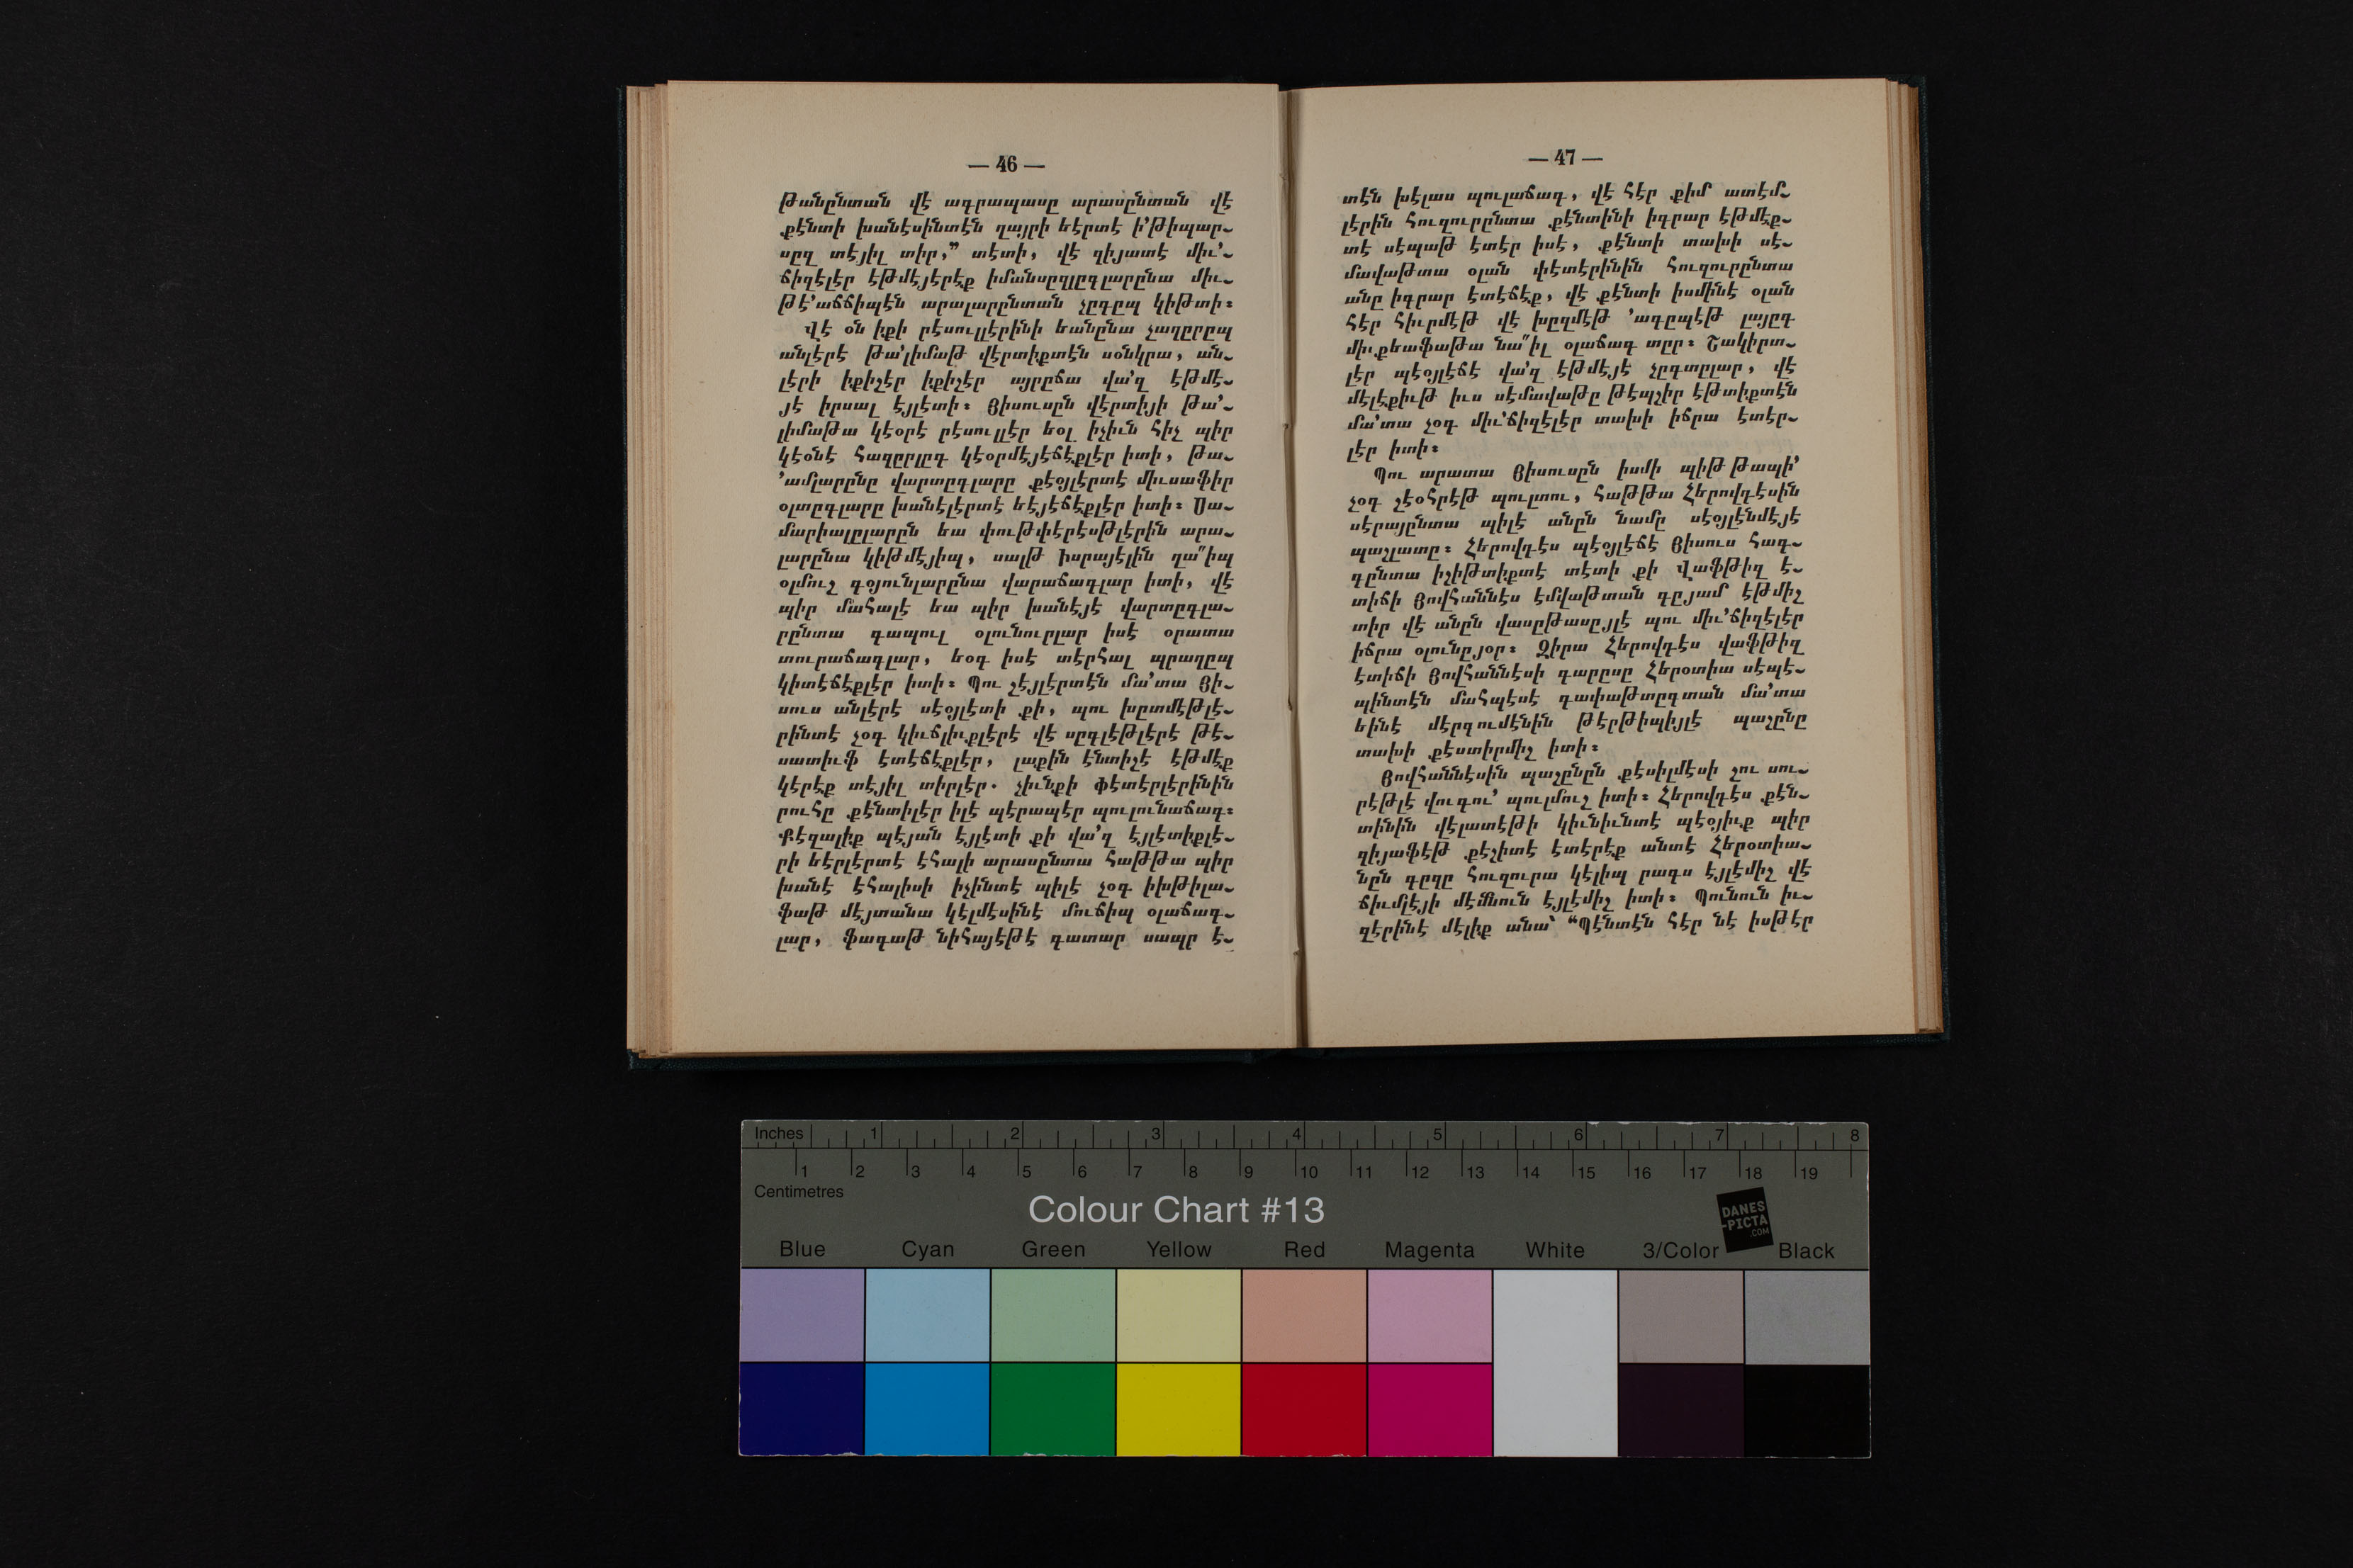 — 46 —
թանընտան վէ ագրապասը արասընտան վէ
քէնտի խանէսինտէն ղայրի եէրտէ ի՛թիպար֊
սըզ տէյիլ տիր,” տէտի, վէ զիյատէ միւ՛֊
ճիզէլէր էթմէյէրէք իմանսըզլըգլարընա միւ֊
թէ՛աճճիպէն արալարընտան չըգըպ կիթտի։
Վէ օն իքի րէսուլլէրինի եանընա չաղըրըպ
անլէրէ թա՛լիմաթ վէրտիքտէն սօնկրա, ան֊
լէրի իքիշէր իքիշէր այրըճա վա՛զ էթմէ֊
յէ իրսալ էյլէտի։ Յիսուսըն վէրտիյի թա՛֊
լիմաթա կէօրէ րէսուլլէր եօլ իչիւն հիչ պիր
կէօնէ հազըրլըգ կէօրմէյէճէքլէր իտի, թա֊
՛ամլարընը վարտըգլարը քէօյլէրտէ միւսաֆիր
օլտըգլարը խանէլէրտէ եէյէճէքլէր իտի։ Սա֊
մարիալըլարըն եա փութփէրէսթլէրին արա֊
լարընա կիթմէյիպ, սալթ Իսրայէլին ղա՞իպ
օլմուշ գօյունլարընա վարաճագլար իտի, վէ
պիր մահալէ եա պիր խանէյէ վարտըգլա֊
րընտա գապուլ օլունուրլար իսէ օրատա
տուրաճագլար, եօգ իսէ տէրհալ պրաղըպ
կիտէճէքլէր իտի։ Պու շէյլէրտէն մա՛տա Յի֊
սուս անլէրէ սէօյլէտի քի, պու խըտմէթլէ֊
րինտէ չօգ կիւճլիւքլէրէ վէ սըգլէթլէրէ թէ֊
սատիւֆ էտէճէքլէր, լաքին էնտիշէ էթմէք
կէրէք տէյիլ տիրլէր. չիւնքի Փէտէրլէրինին
րուհը քէնտիլէր իլէ պէրապէր պուլունաճագ։
Քէզալիք պէյան էյլէտի քի վա՛զ էյլէտիքլէ֊
րի եէրլէրտէ էհալի արասընտա հաթթա պիր
խանէ էհալիսի իչինտէ պիլէ չօգ իխթիլա֊
ֆաթ մէյտանա կէլմէսինէ մուճիպ օլաճագ֊
լար, ֆագաթ նիհայէթէ գատար սապր է֊
— 47 —
տէն խէլաս պուլաճագ, վէ հէր քիմ ատէմ֊
լէրին հուզուրընտա քէնտինի իգրար էթմէք֊
տէ սէպաթ էտէր իսէ, քէնտի տախի սէ֊
մավաթտա օլան փէտէրինին հուզուրընտա
անը իգրար էտէճէք, վէ քէնտի իսմինէ օլան
հէր հիւրմէթ վէ խըզմէթ ՛ագըպէթ լայըգ
միւքեաֆաթա նա՞իլ օլաճագ տըր։ Շակիրտ֊
լէր պէօյլէճէ վա՛զ էթմէյէ չըգտըլար, վէ
մէլէքիւթ իւս սէմավաթը թէպշիր էթտիքտէն
մա՛տա չօգ միւ՛ճիզէլէր տախի իճրա էտէր֊
լէր իտի։
Պու արատա Յիսուսըն իսմի պիթ թապի՛
չօգ շէօհրէթ պուլտու, հաթթա Հերովդէսին
սէրայընտա պիլէ անըն նամը սէօյլէնմէյէ
պաշլատը։ Հերովդէս պէօյլէճէ Յիսուս հագ֊
գընտա իշիթտիքտէ տէտի քի Վաֆթիզ է֊
տիճի Յովհաննէս էմվաթտան գըյամ էթմիշ
տիր վէ անըն վասըթասըյլէ պու միւ՛ճիզէլէր
իճրա օլունըյօր։ Զիրա Հերովդէս վաֆթիզ
էտիճի Յովհաննէսի գարըսը Հերօտիա սէպէ֊
պինտէն մահպէսէ գափաթտըգտան մա՛տա
եինէ մէրզումէնին թէրթիպիյլէ պաշընը
տախի քէստիրմիշ իտի։
Յովհաննէսին պաշընըն քէսիլմէսի շու սու֊
րէթլէ վուգու՛ պուլմուշ իտի։ Հերովդէս քէն֊
տինին վէլատէթի կիւնիւնտէ պէօյիւք պիր
զիյաֆէթ քէշիտէ էտէրէք անտէ Հերօտիա֊
նըն գըզը հուզուրա կէլիպ րագս էյլէմիշ վէ
ճիւմլէյի մէմնուն էյլէմիշ իտի։ Պունուն իւ֊
զէրինէ մէլիք անա՝ “Պէնտէն հէր նէ իսթէր
Inches 1 2 3 4 5 6 7 8
1 2 3 4 5 6 7 8 9 10 11 12 13 14 15 16 17 18 19
Centimetres
Colour Chart #13
DANES
-PICTA
.COM
Blue Cyan Green Yellow Red Magenta White 3/Color Black